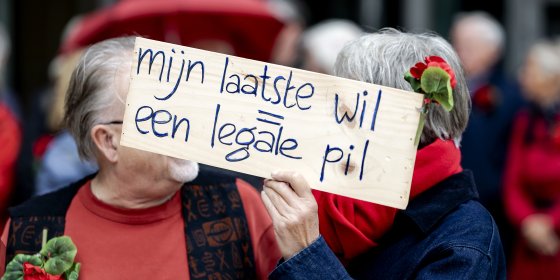 mijn laatste wil
=
een legale pil